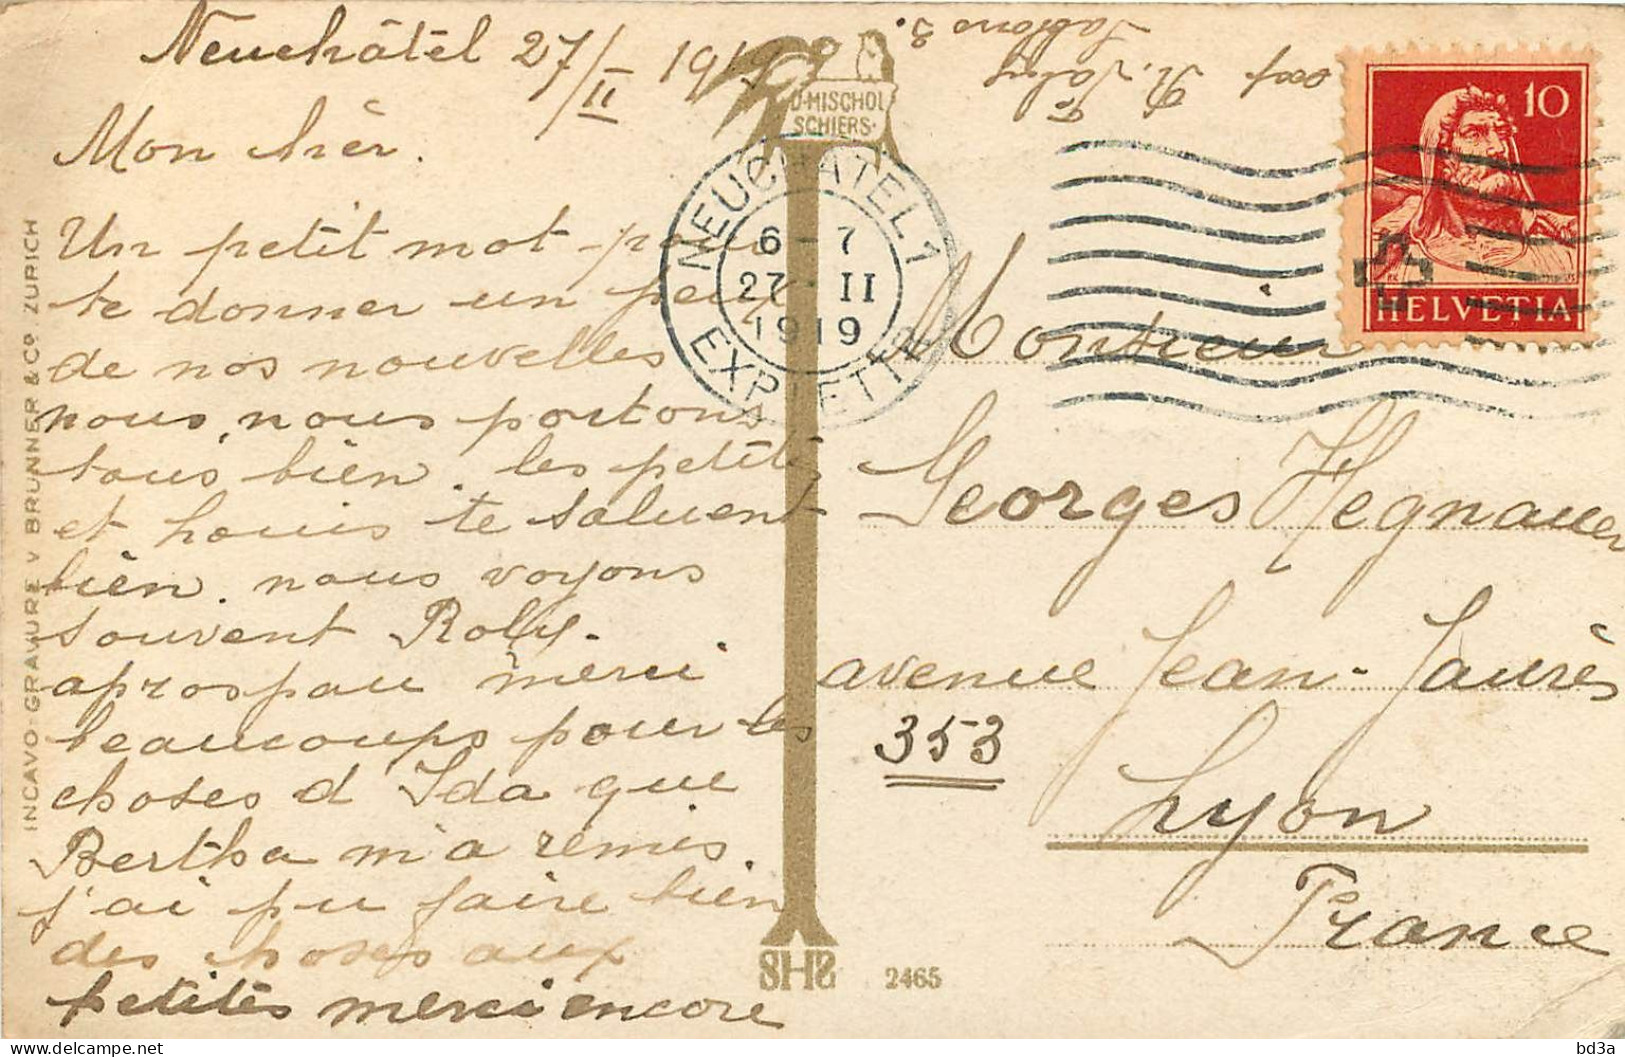 Neuchâtel 27/II 1919
Mon chèr.
Un petit mot pour
te donner un peux
de nos nouvelles
nous, nous portons
tous bièn. les petits
et houis te saluent
bièn. nous voyons
souvent Roby.
aprospau mérci
beaucoups pour les
choses d Ida que
Bertha m'a rémis.
j'ai pu faire bièn
des choses aux
petités merci encore
Sablons 3.
D. MISCHOL
SCHIERS.
NEUCHATEL 1
6-7
27 II
1919
EXP. LETTR.
10
HELVETIA
Monsieur
Georges Hegnauer
avenue Jean-Jaurès
353
Lyon
France
INCAVO-GRAVURE V BRUNNER & Co. ZURICH
SHS 2465
delcampe.net
bd3a